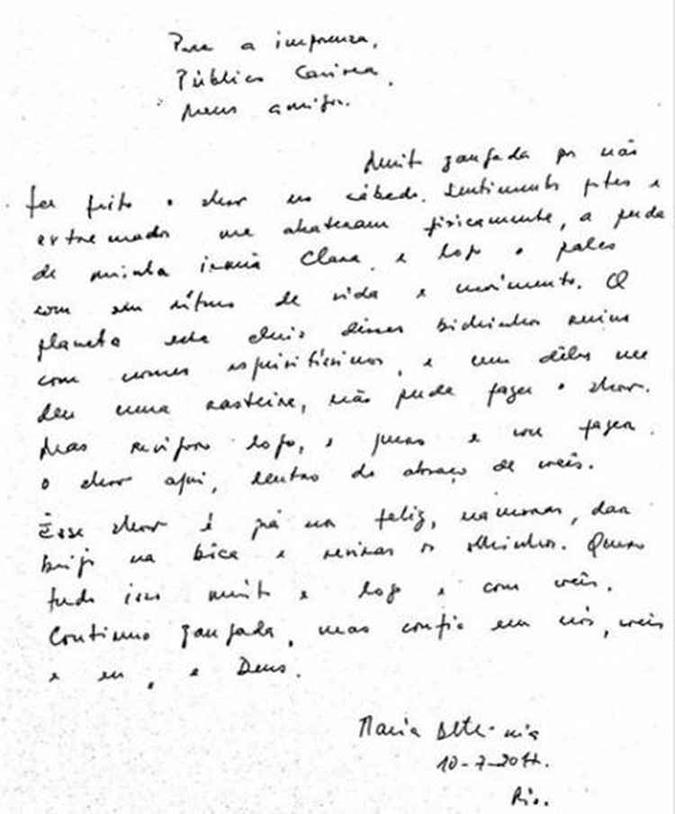 Para a imprensa,
Público Carioca,
Meus amigos.
Muito zangada por não
ter feito o show no sábado. Sentimentos fortes e
extremados me abateram fisicamente, a perda
de minha irmã Clara, e logo o palco
com seu ritmo de vida e movimento. O
planeta está cheio desses bichinhos ruins
com nomes esquisitíssimos, e um dêles me
deu uma rasteira, não pude fazer o show.
Mas revigoro logo, e juro e vou fazer
o show aqui, dentro do abraço de vocês.
Êsse show é prá ser feliz, namorar, dar
beijo na bôca e revirar os olhinhos. Quero
tudo isso muito e logo e com vocês.
Continuo zangada, mas confio em nós, vocês
e eu, e Deus.
Maria Bethânia
10-7-2011.
Rio.